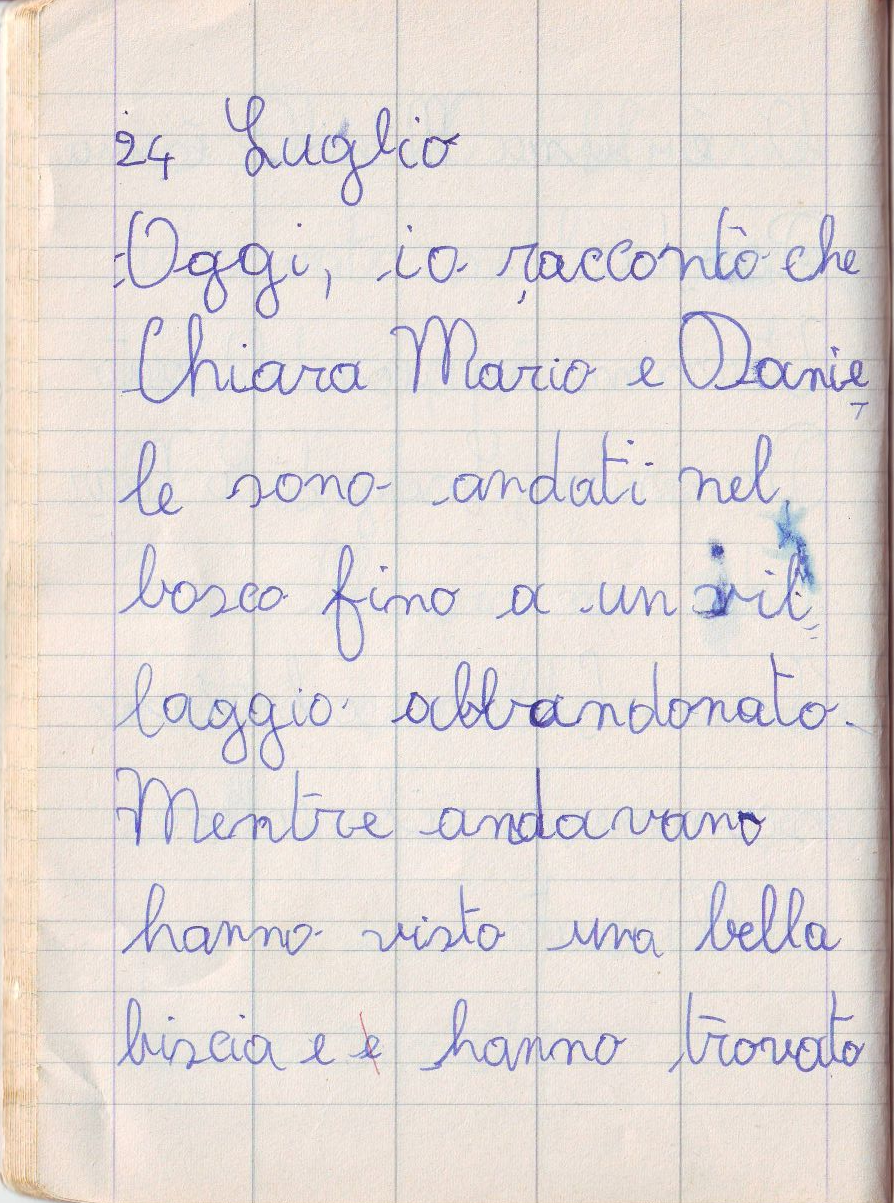 24 Luglio
Oggi, io racconto che
Chiara Mario e Danie
le sono andati nel
bosco fino a un vil
laggio abbandonato.
Mentre andavano
hanno visto una bella
biscia e e hanno trovato